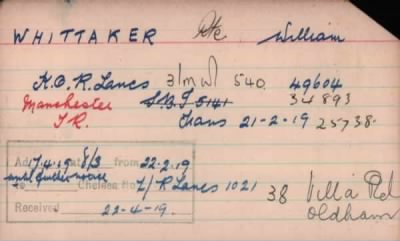 WHITTAKER Pte William
K.O.R. Lancs 3/m W 540 49604
Manchester S.B.I 5141 34893
I.R. Trans 21-2-19 25738.
Ad 17.4.19 8/3 from 22.2.19
until further notice
To Chelsea Ho L/R Lancs 1021 38 Villa Rd
Received 22-4-19. Oldham